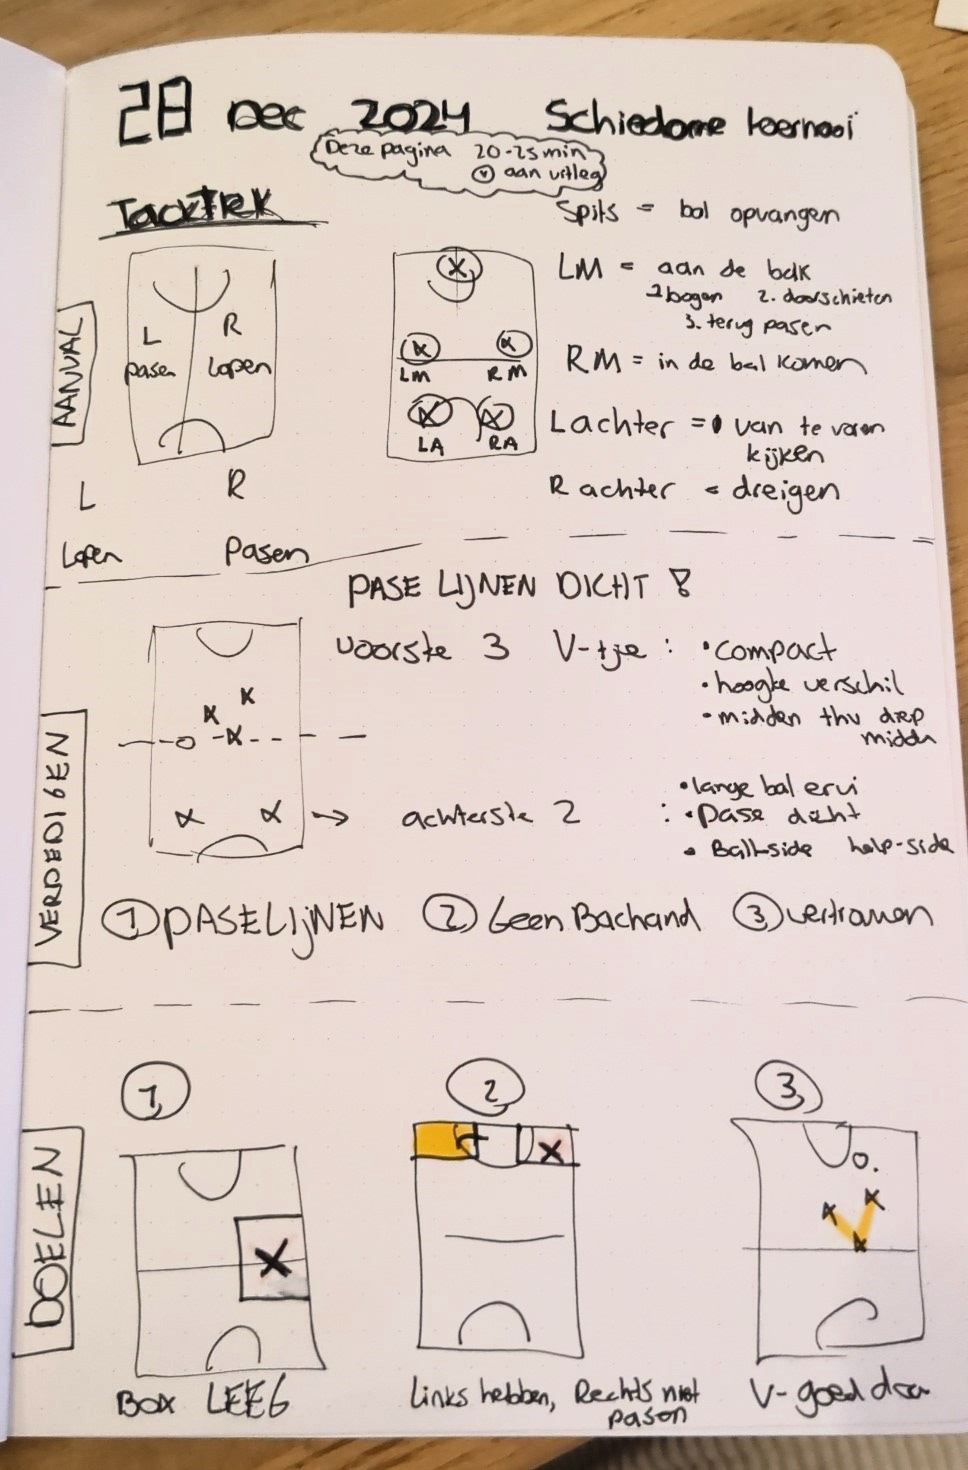 28 Dec 2024 Schiedame toernooi
Deze pagina 20-25 min
aan uitleg
Tacktiek
AANVAL
L
R
pasen
lopen
L
R
Lopen
Pasen
X
X
X
LM
RM
X
X
LA
RA
Spits = bal opvangen
LM = aan de balk
1 bogen 2. doorschieten
3. terug pasen
RM = in de bal komen
L achter = van te voren
kijken
R achter = dreigen
PASE LIJNEN DICHT !
VERDEDIGEN
voorste 3 V-tje :
• compact
• hoogte verschil
• midden thv diep
midden
X
X
X
X
X
→ achterste 2 :
• lange bal eruit
• pase dicht
• Ball-side help-side
1 PASELIJNEN 2 Geen Bachand 3 vertrouwen
DOELEN
1
2
3
X
+
X
X
X
X
BOX LEEG
Links hebben, Rechts niet
pasen
V-goed doen